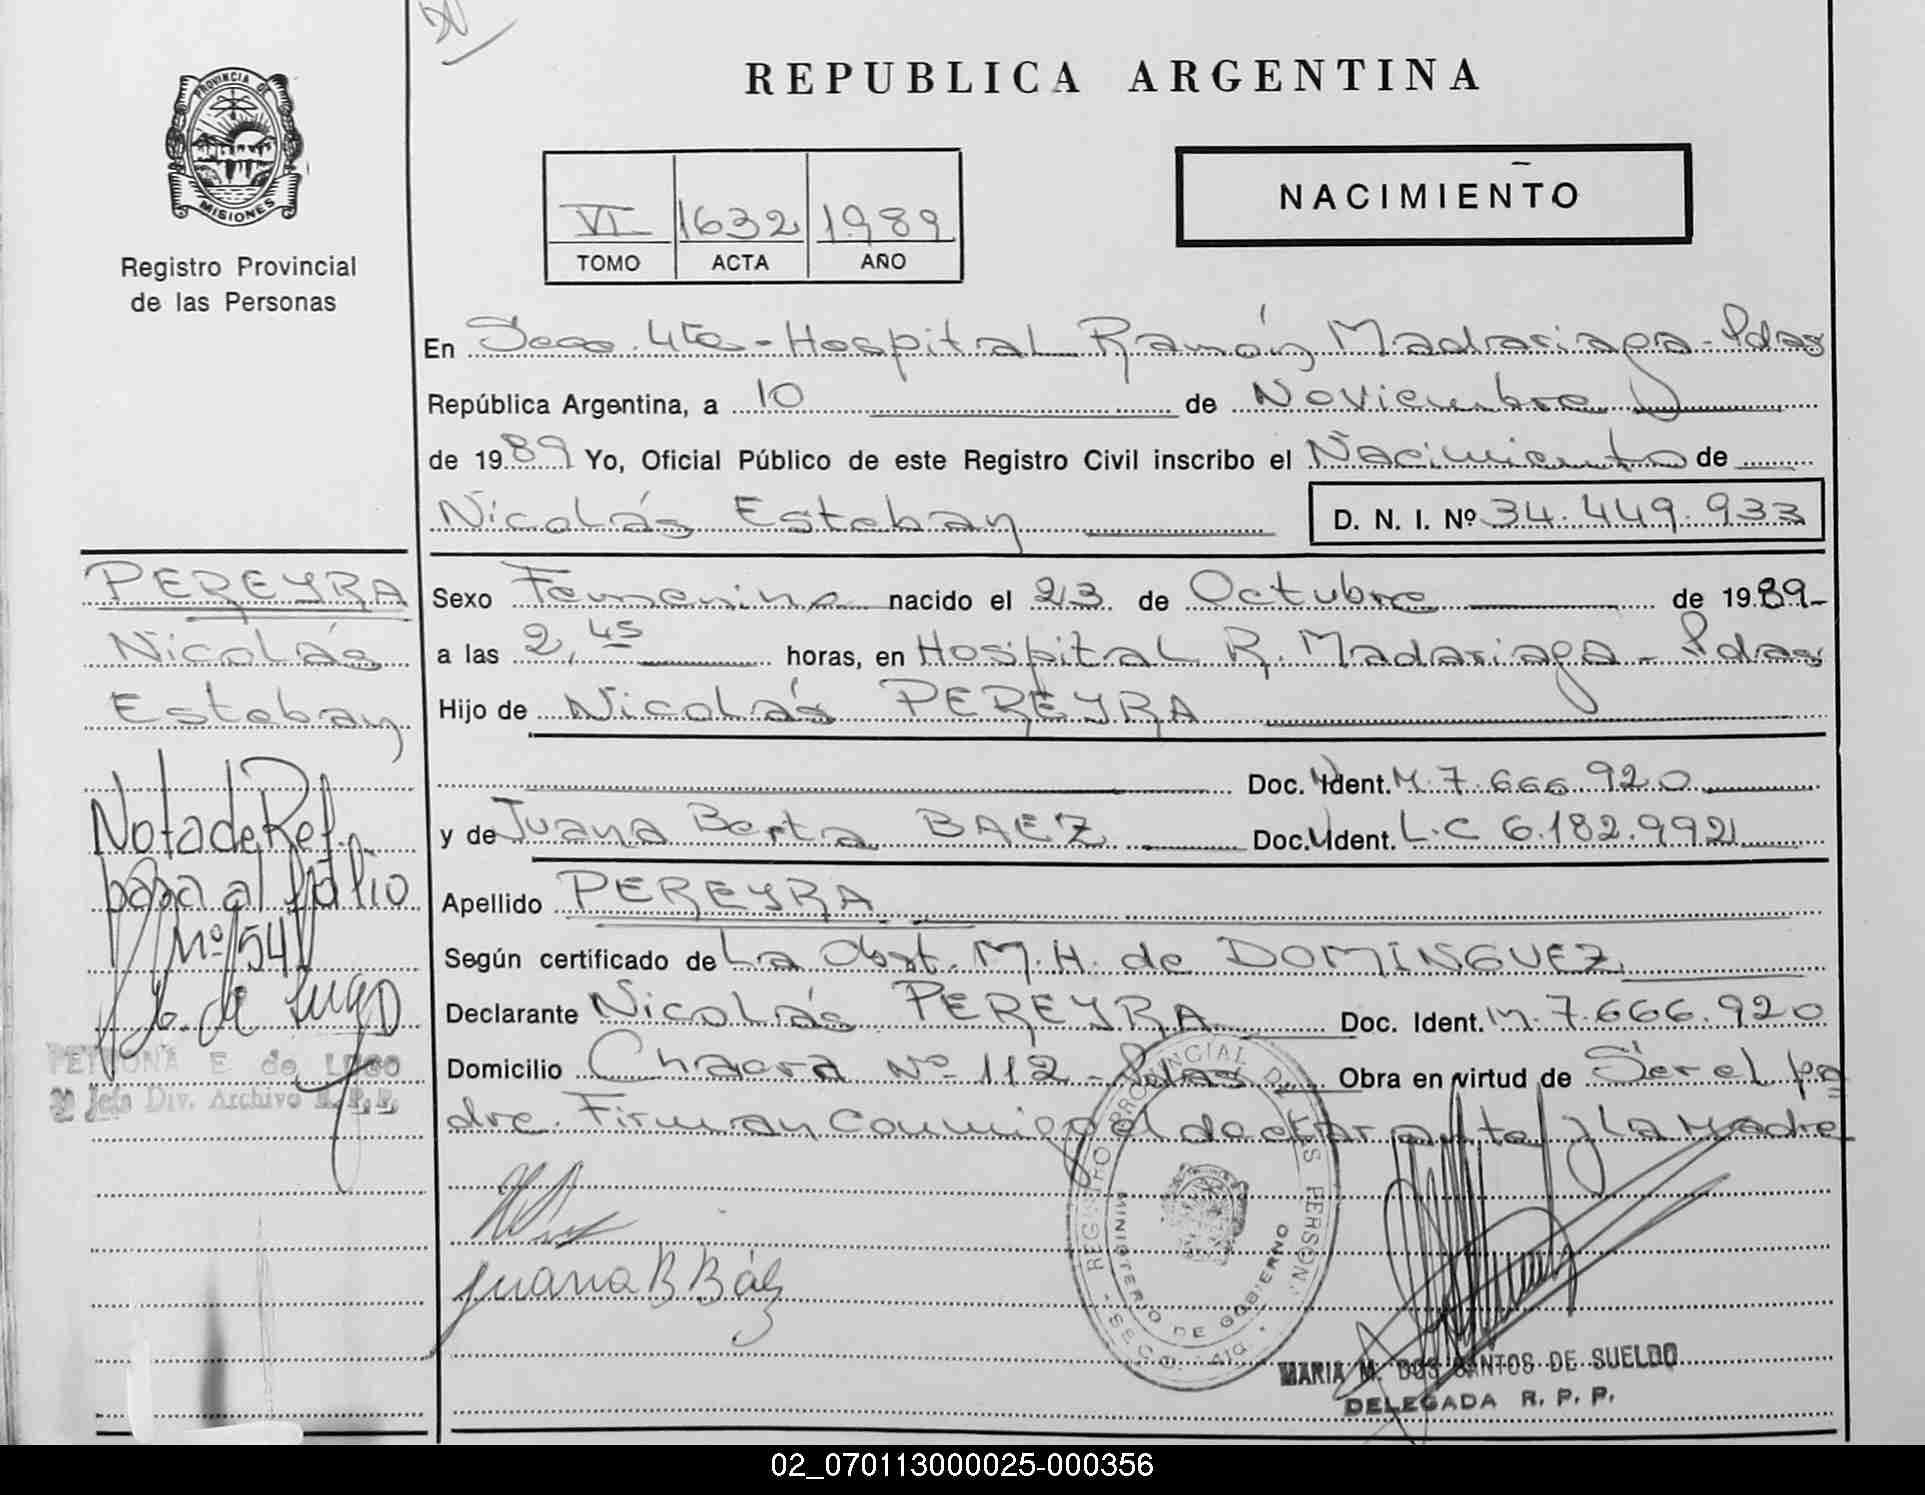 REPUBLICA ARGENTINA
PROVINCIA DE
MISIONES
Registro Provincial
de las Personas
VI 1632 1989
TOMO ACTA AÑO
NACIMIENTO
En Secc. 4ta - Hospital Ramón Madariaga - Pdas
República Argentina, a 10 de Noviembre
de 1989 Yo, Oficial Público de este Registro Civil inscribo el Nacimiento de
Nicolás Esteban D. N. I. Nº 34.449.933
PEREYRA
Nicolás
Esteban
Nota de Ref.
pasa al folio
Nº 54
de Lugo
PETRONA E de LUGO
Jefa Div. Archivo R.P.P.
Sexo Femenino nacido el 23 de Octubre de 1989-
a las 2,45 horas, en Hospital R. Madariaga - Pdas
Hijo de Nicolás PEREYRA
Doc. Ident. M. 7.666.920
y de Juana Berta BAEZ Doc. Ident. L.C 6.182.992
Apellido PEREYRA
Según certificado de La Obst. M.H. de DOMINGUEZ
Declarante Nicolás PEREYRA Doc. Ident. M. 7.666.920
Domicilio Chacra Nº 112 - Pdas Obra en virtud de Ser el pa
dre. Firman conmigo el declarante y la madre
Juana B Báez
REGISTRO PROVINCIAL DE LAS PERSONAS
MINISTERIO DE GOBIERNO
SECC. 4ta
MARIA M. DOS SANTOS DE SUELDO
DELEGADA R. P. P.
02_070113000025-000356